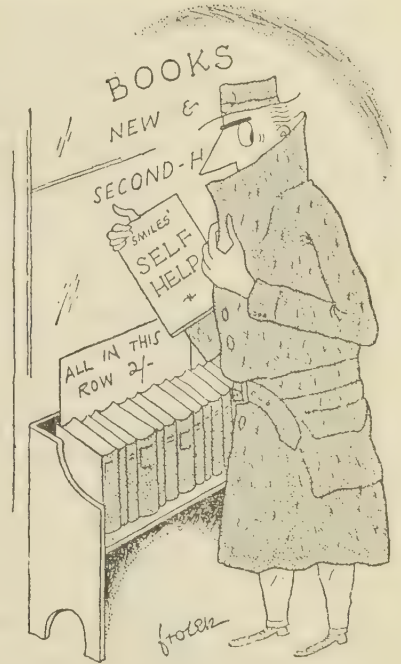 BOOKS
NEW &
SECOND-H
SMILES'
SELF
HELP
ALL IN THIS
ROW 2/-